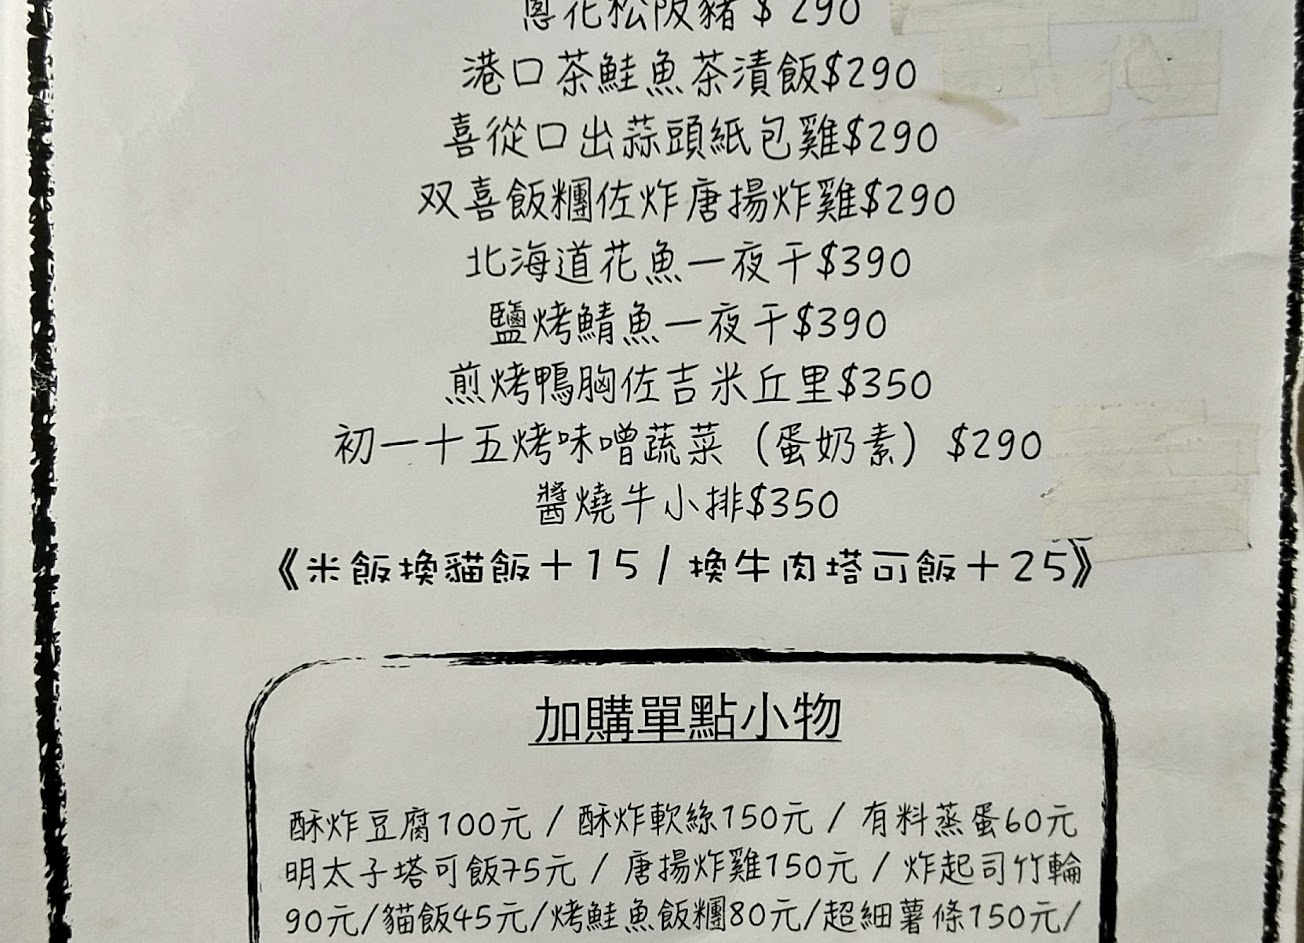 蔥花松阪豬$290
港口茶鮭魚茶漬飯$290
喜從口出蒜頭紙包雞$290
双喜飯糰佐炸唐揚炸雞$290
北海道花魚一夜干$390
鹽烤鯖魚一夜干$390
煎烤鴨胸佐吉米丘里$350
初一十五烤味噌蔬菜（蛋奶素）$290
醬燒牛小排$350
《米飯換貓飯＋15 / 換牛肉塔可飯＋25》
加購單點小物
酥炸豆腐100元 / 酥炸軟絲150元 / 有料蒸蛋60元
明太子塔可飯75元 / 唐揚炸雞150元 / 炸起司竹輪
90元/貓飯45元/烤鮭魚飯糰80元/超細薯條150元/